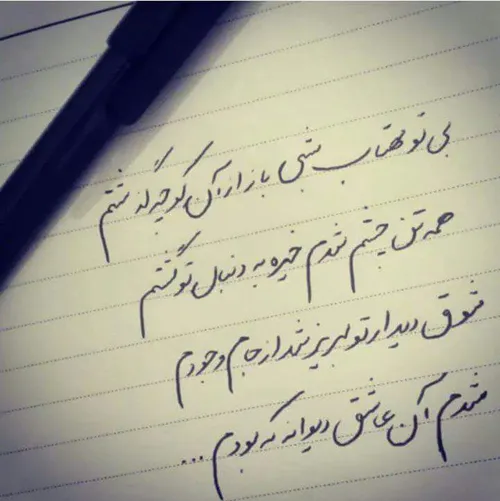 بی تو مهتاب شبی باز از آن کوچه گذشتم
همه تن چشم شدم خیره به دنبال تو گشتم
شوق دیدار تو لبریز شد از جام وجودم
شدم آن عاشق دیوانه که بودم ...